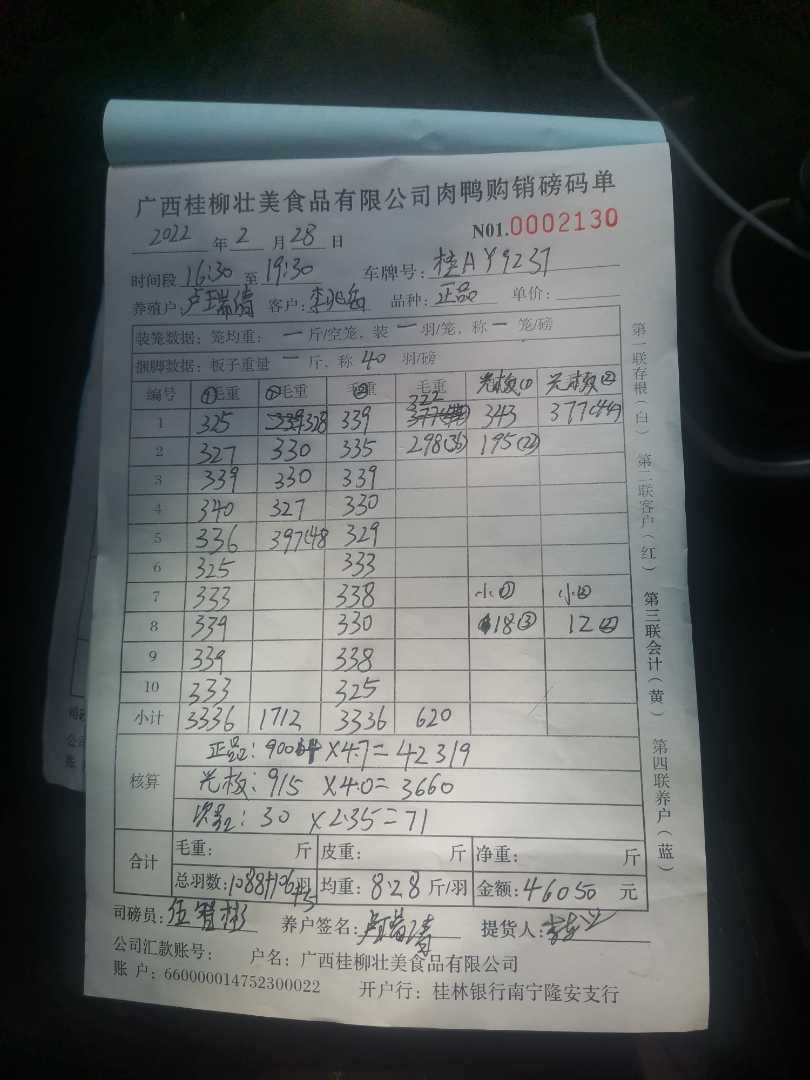 广西桂柳壮美食品有限公司肉鸭购销磅码单
N01.0002130
2022年2月28日
时间段16:30至19:30 车牌号：桂AY9237
养殖户：卢瑞清 客户： 品种：正品 单价：
装笼数据：笼均重：一斤/空笼，装一羽/笼，称一笼/磅
捆脚数据：板子重量一斤，称40羽/磅
编号 ①毛重 ②毛重 ③毛重 毛重 光板(1) 光板②
1 325 328 339 222 343 377(44)
2 327 330 335 298(36) 195(22)
3 339 330 339
4 340 327 330
5 336 397(48 329
6 325 333
7 333 338 小① 小②
8 339 330 18③ 12②
9 339 338
10 333 325
小计 3336 1712 3336 620
核算
正品： 9004 X4.7=42319
光板：915 X4.0=3660
30 X2.35=71
合计
毛重： 斤 皮重： 斤 净重： 斤
总羽数：1088+106羽+5 均重：8.28斤/羽 金额：46050元
司磅员： 养户签名：卢瑞清 提货人：
公司汇款账号： 户名：广西桂柳壮美食品有限公司
账 户：660000014752300022 开户行：桂林银行南宁隆安支行
第一联存根（白） 第二联客户（红） 第三联会计（黄） 第四联养户（蓝）